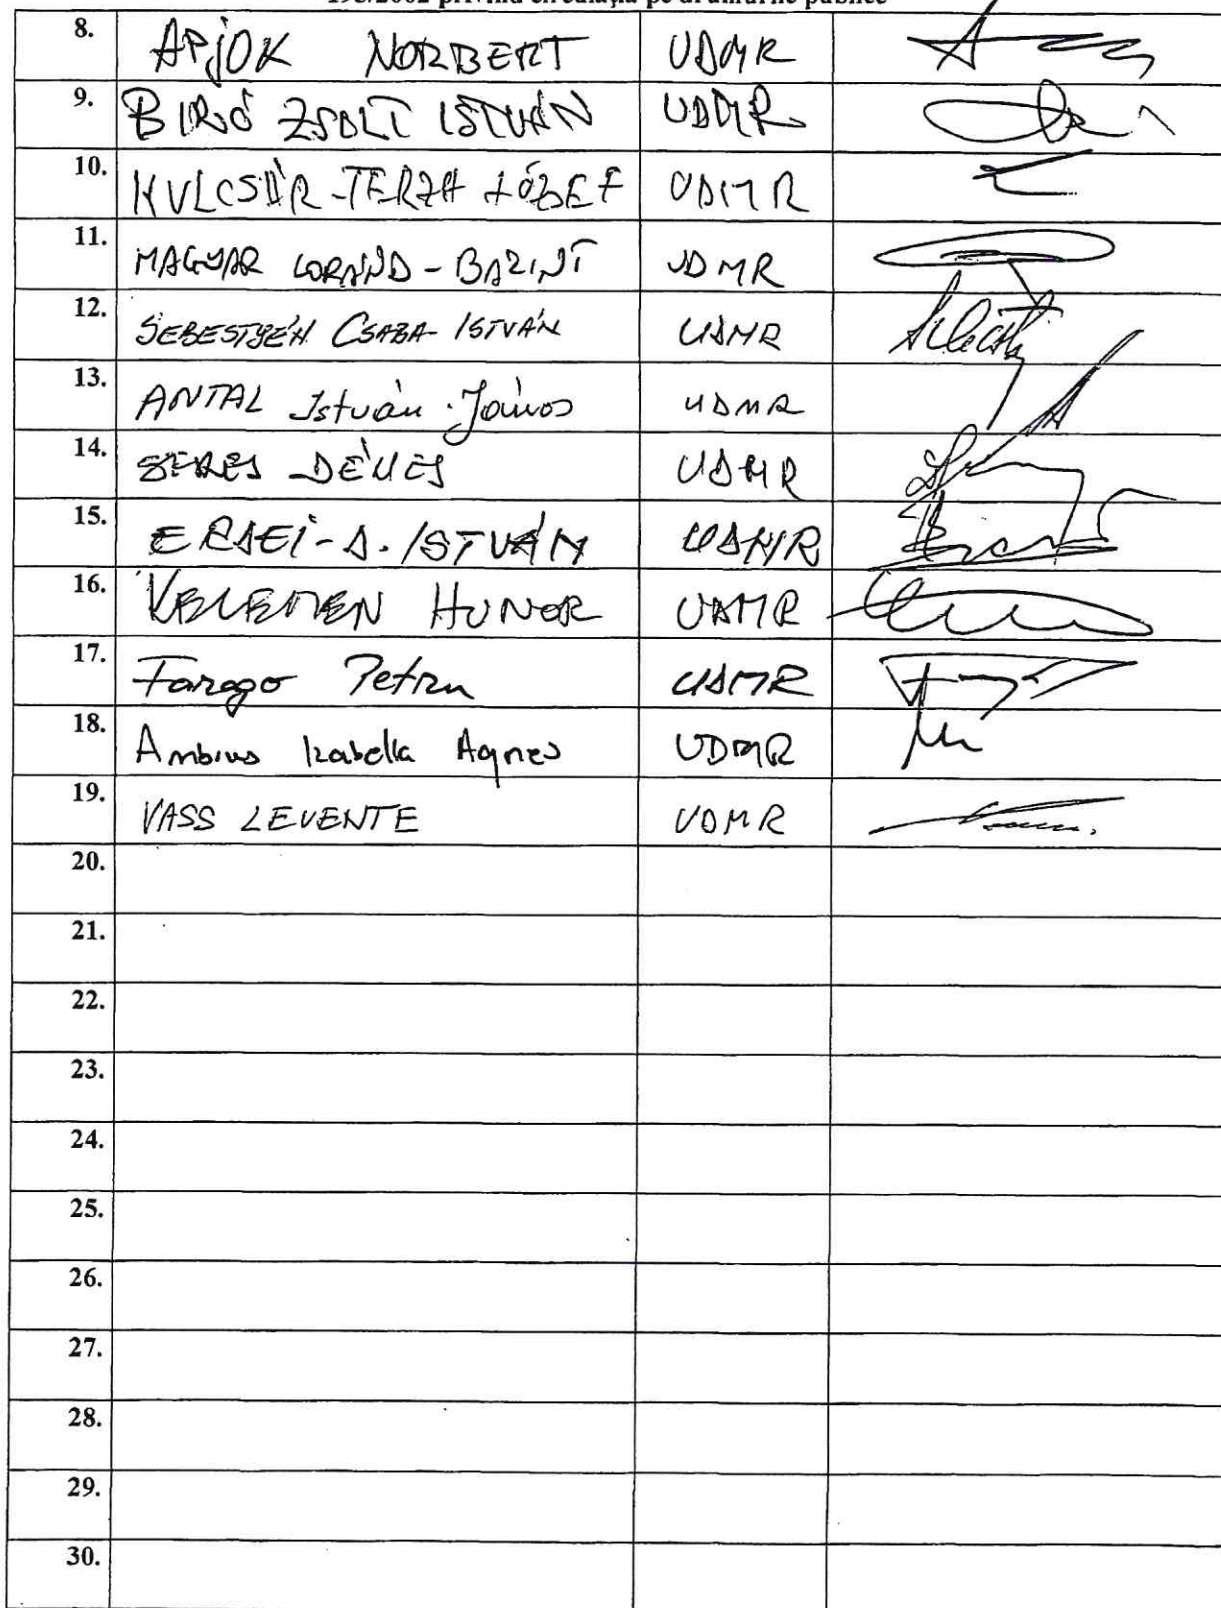 195/2002 privind circulaţia pe drumurile publice
8. APJOK NORBERT UDMR
9. BIRÓ ZSOLT ISTVÁN UDMR
10. KULCSÁR-TERZA JÓZSEF UDMR
11. MAGYAR LORÁND-BÁLINT UDMR
12. SEBESTYÉN CSABA-ISTVÁN UDMR
13. ANTAL István-János UDMR
14. SERES DÉNES UDMR
15. ERDEI-D. ISTVÁN UDMR
16. KELEMEN HUNOR UDMR
17. Farago Petru UDMR
18. Ambrus Izabella Agnes UDMR
19. VASS LEVENTE UDMR
20.
21.
22.
23.
24.
25.
26.
27.
28.
29.
30.